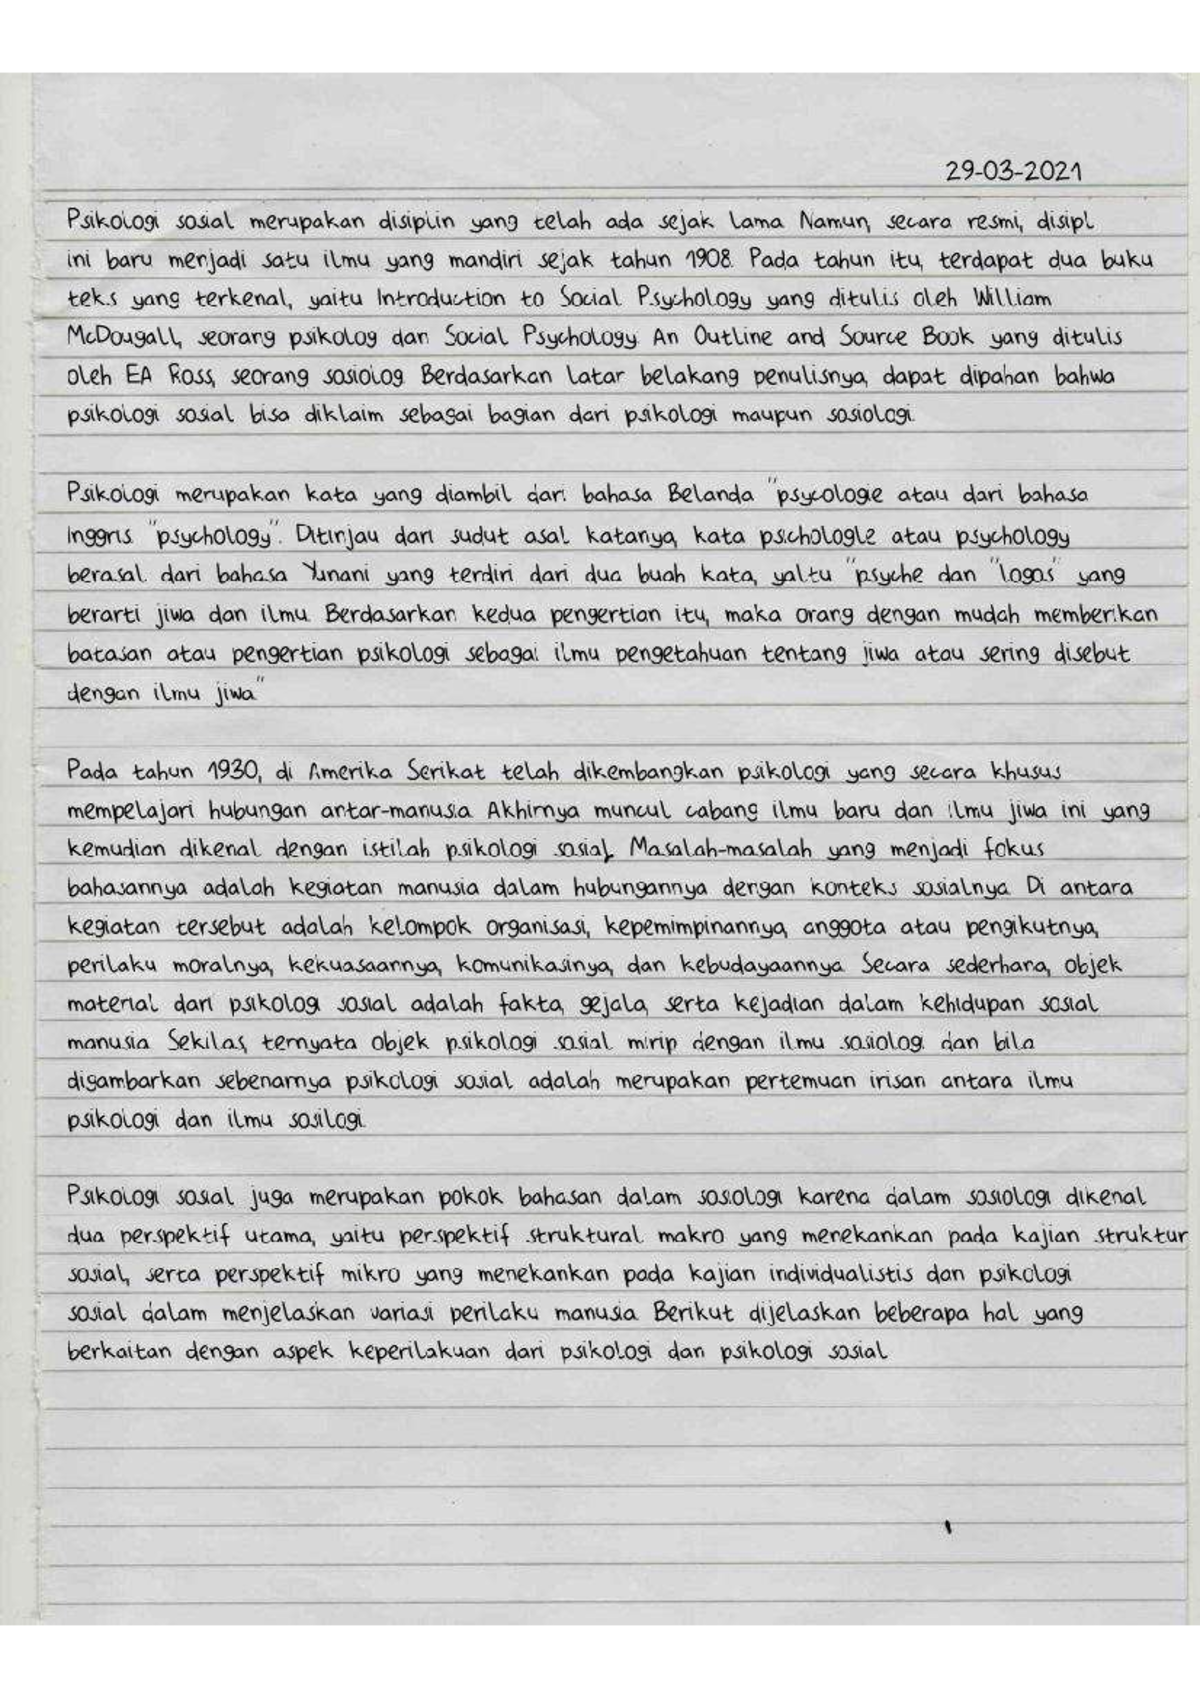 29-03-2021
Psikologi sosial merupakan disiplin yang telah ada sejak lama Namun, secara resmi, disipl
ini baru menjadi satu ilmu yang mandiri sejak tahun 1908. Pada tahun itu, terdapat dua buku
teks yang terkenal, yaitu Introduction to Social Psychology yang ditulis oleh William
McDougall, seorang psikolog dan Social Psychology. An Outline and Source Book yang ditulis
oleh EA Ross, seorang sosiolog. Berdasarkan latar belakang penulisnya, dapat dipahan bahwa
psikologi sosial bisa diklaim sebagai bagian dari psikologi maupun sosiologi.
Psikologi merupakan kata yang diambil dari bahasa Belanda "psycologie atau dari bahasa
Inggris "psychology". Ditinjau dari sudut asal katanya, kata psichologle atau psychology
berasal dari bahasa Yunani yang terdiri dari dua buah kata, yaltu "psyche dan "logos" yang
berarti jiwa dan ilmu. Berdasarkan kedua pengertian itu, maka orang dengan mudah memberikan
batasan atau pengertian psikologi sebagai ilmu pengetahuan tentang jiwa atau sering disebut
dengan ilmu jiwa"
Pada tahun 1930, di Amerika Serikat telah dikembangkan psikologi yang secara khusus
mempelajari hubungan antar-manusia. Akhirnya muncul cabang ilmu baru dan ilmu jiwa ini yang
kemudian dikenal dengan istilah psikologi sosial, Masalah-masalah yang menjadi fokus
bahasannya adalah kegiatan manusia dalam hubungannya dengan konteks sosialnya Di antara
kegiatan tersebut adalah kelompok organisasi, kepemimpinannya, anggota atau pengikutnya,
perilaku moralnya, kekuasaannya, komunikasinya, dan kebudayaannya Secara sederhana, objek
material dari psikologi sosial adalah fakta, gejala, serta kejadian dalam kehidupan sosial
manusia Sekilas, ternyata objek psikologi sosial mirip dengan ilmu sosiologi dan bila
digambarkan sebenarnya psikologi sosial adalah merupakan pertemuan irisan antara ilmu
psikologi dan ilmu sosilogi.
Psikologi sosial juga merupakan pokok bahasan dalam sosiologi karena dalam sosiologi dikenal
dua perspektif utama, yaitu perspektif struktural makro yang menekankan pada kajian struktur
sosial, serta perspektif mikro yang menekankan pada kajian individualistis dan psikologi
sosial dalam menjelaskan variasi perilaku manusia Berikut dijelaskan beberapa hal yang
berkaitan dengan aspek keperilakuan dari psikologi dan psikologi sosial